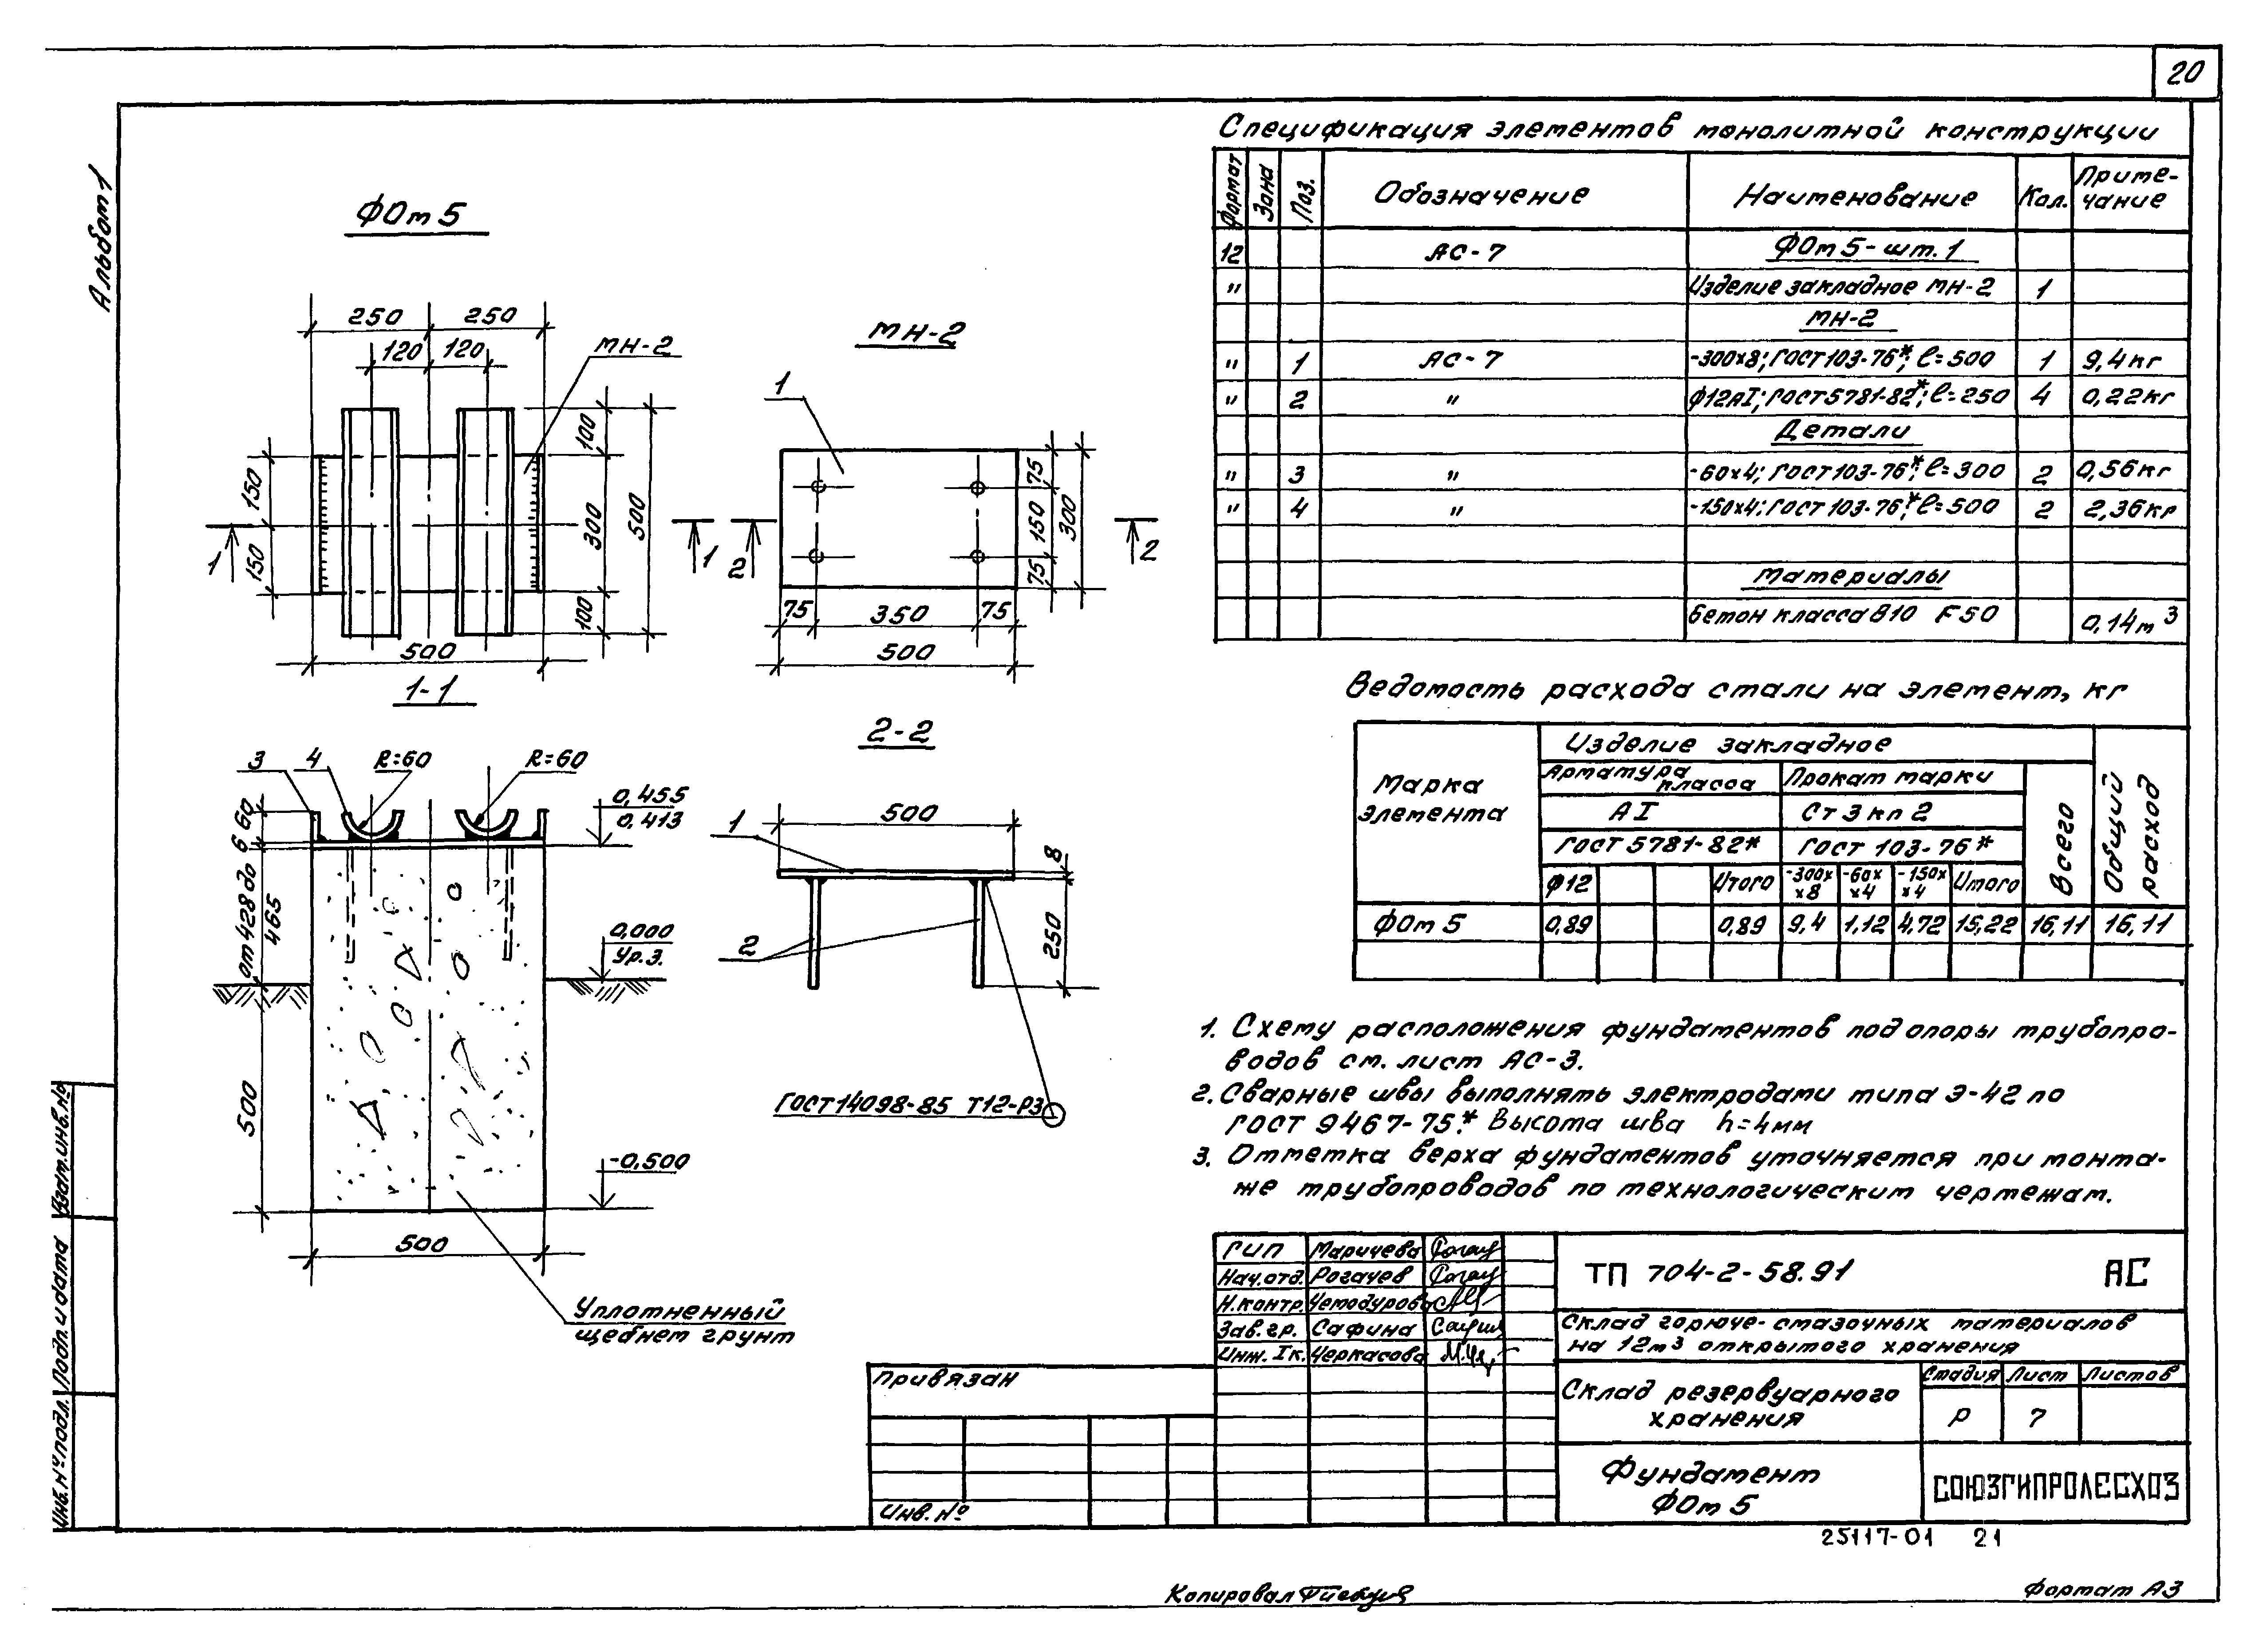 20
Альбом 1
ФОм 5
250 250
120 120
МН-2
150
150
100
300
100
500
500
1 1
МН-2
1
75
150
75
300
2 2
75 350 75
500
1-1
3 4 R=60 R=60
60
6
от 428 до
465
500
0,455
0,413
0,000
Ур.з.
-0,500
500
Уплотненный
щебнем грунт
2-2
500
1
8
2
250
ГОСТ 14098-85 Т12-Рз
Спецификация элементов монолитной конструкции
Формат Зона Поз. Обозначение Наименование Кол. Приме-
чание
12 АС-7 ФОм 5-шт.1
" Изделие закладное МН-2 1
МН-2
" 1 АС-7 -300х8; ГОСТ 103-76*; ℓ=500 1 9,4кг
" 2 " ф12АI; ГОСТ 5781-82*; ℓ=250 4 0,22кг
Детали
" 3 " -60х4; ГОСТ 103-76*; ℓ=300 2 0,56кг
" 4 " -150х4; ГОСТ 103-76*; ℓ=500 2 2,36кг
Материалы
бетон класса В10 F50 0,14м³
Ведомость расхода стали на элемент, кг
Марка
элемента
Изделие закладное
Арматура
класса
Прокат марки
АI Ст 3 кп 2
ГОСТ 5781-82* ГОСТ 103-76*
Всего
Общий
расход
ф12 Итого -300х
х8 -60х
х4 -150х
х4 Итого
ФОм 5 0,89 0,89 9,4 1,12 4,72 15,22 16,11 16,11
1. Схему расположения фундаментов под опоры трубопро-
водов см. лист АС-3.
2. Сварные швы выполнять электродами типа Э-42 по
ГОСТ 9467-75*. Высота шва h=4мм
3. Отметка верха фундаментов уточняется при монта-
же трубопроводов по технологическим чертежам.
ГИП Маричева
Нач.отд. Рогачев
Н.контр. Чемодурова
Зав.гр. Сафина
Инж. I к. Черкасова
ТП 704-2-58.91 АС
Склад горюче-смазочных материалов
на 12м³ открытого хранения
Склад резервуарного
хранения
Стадия Лист Листов
Р 7
Фундамент
ФОм 5
СОЮЗГИПРОЛЕСХОЗ
Привязан
Инв. №
Взам.инв.№
Подп. и дата
Инв. № подл.
25117-01 21
Копировал
Формат А3